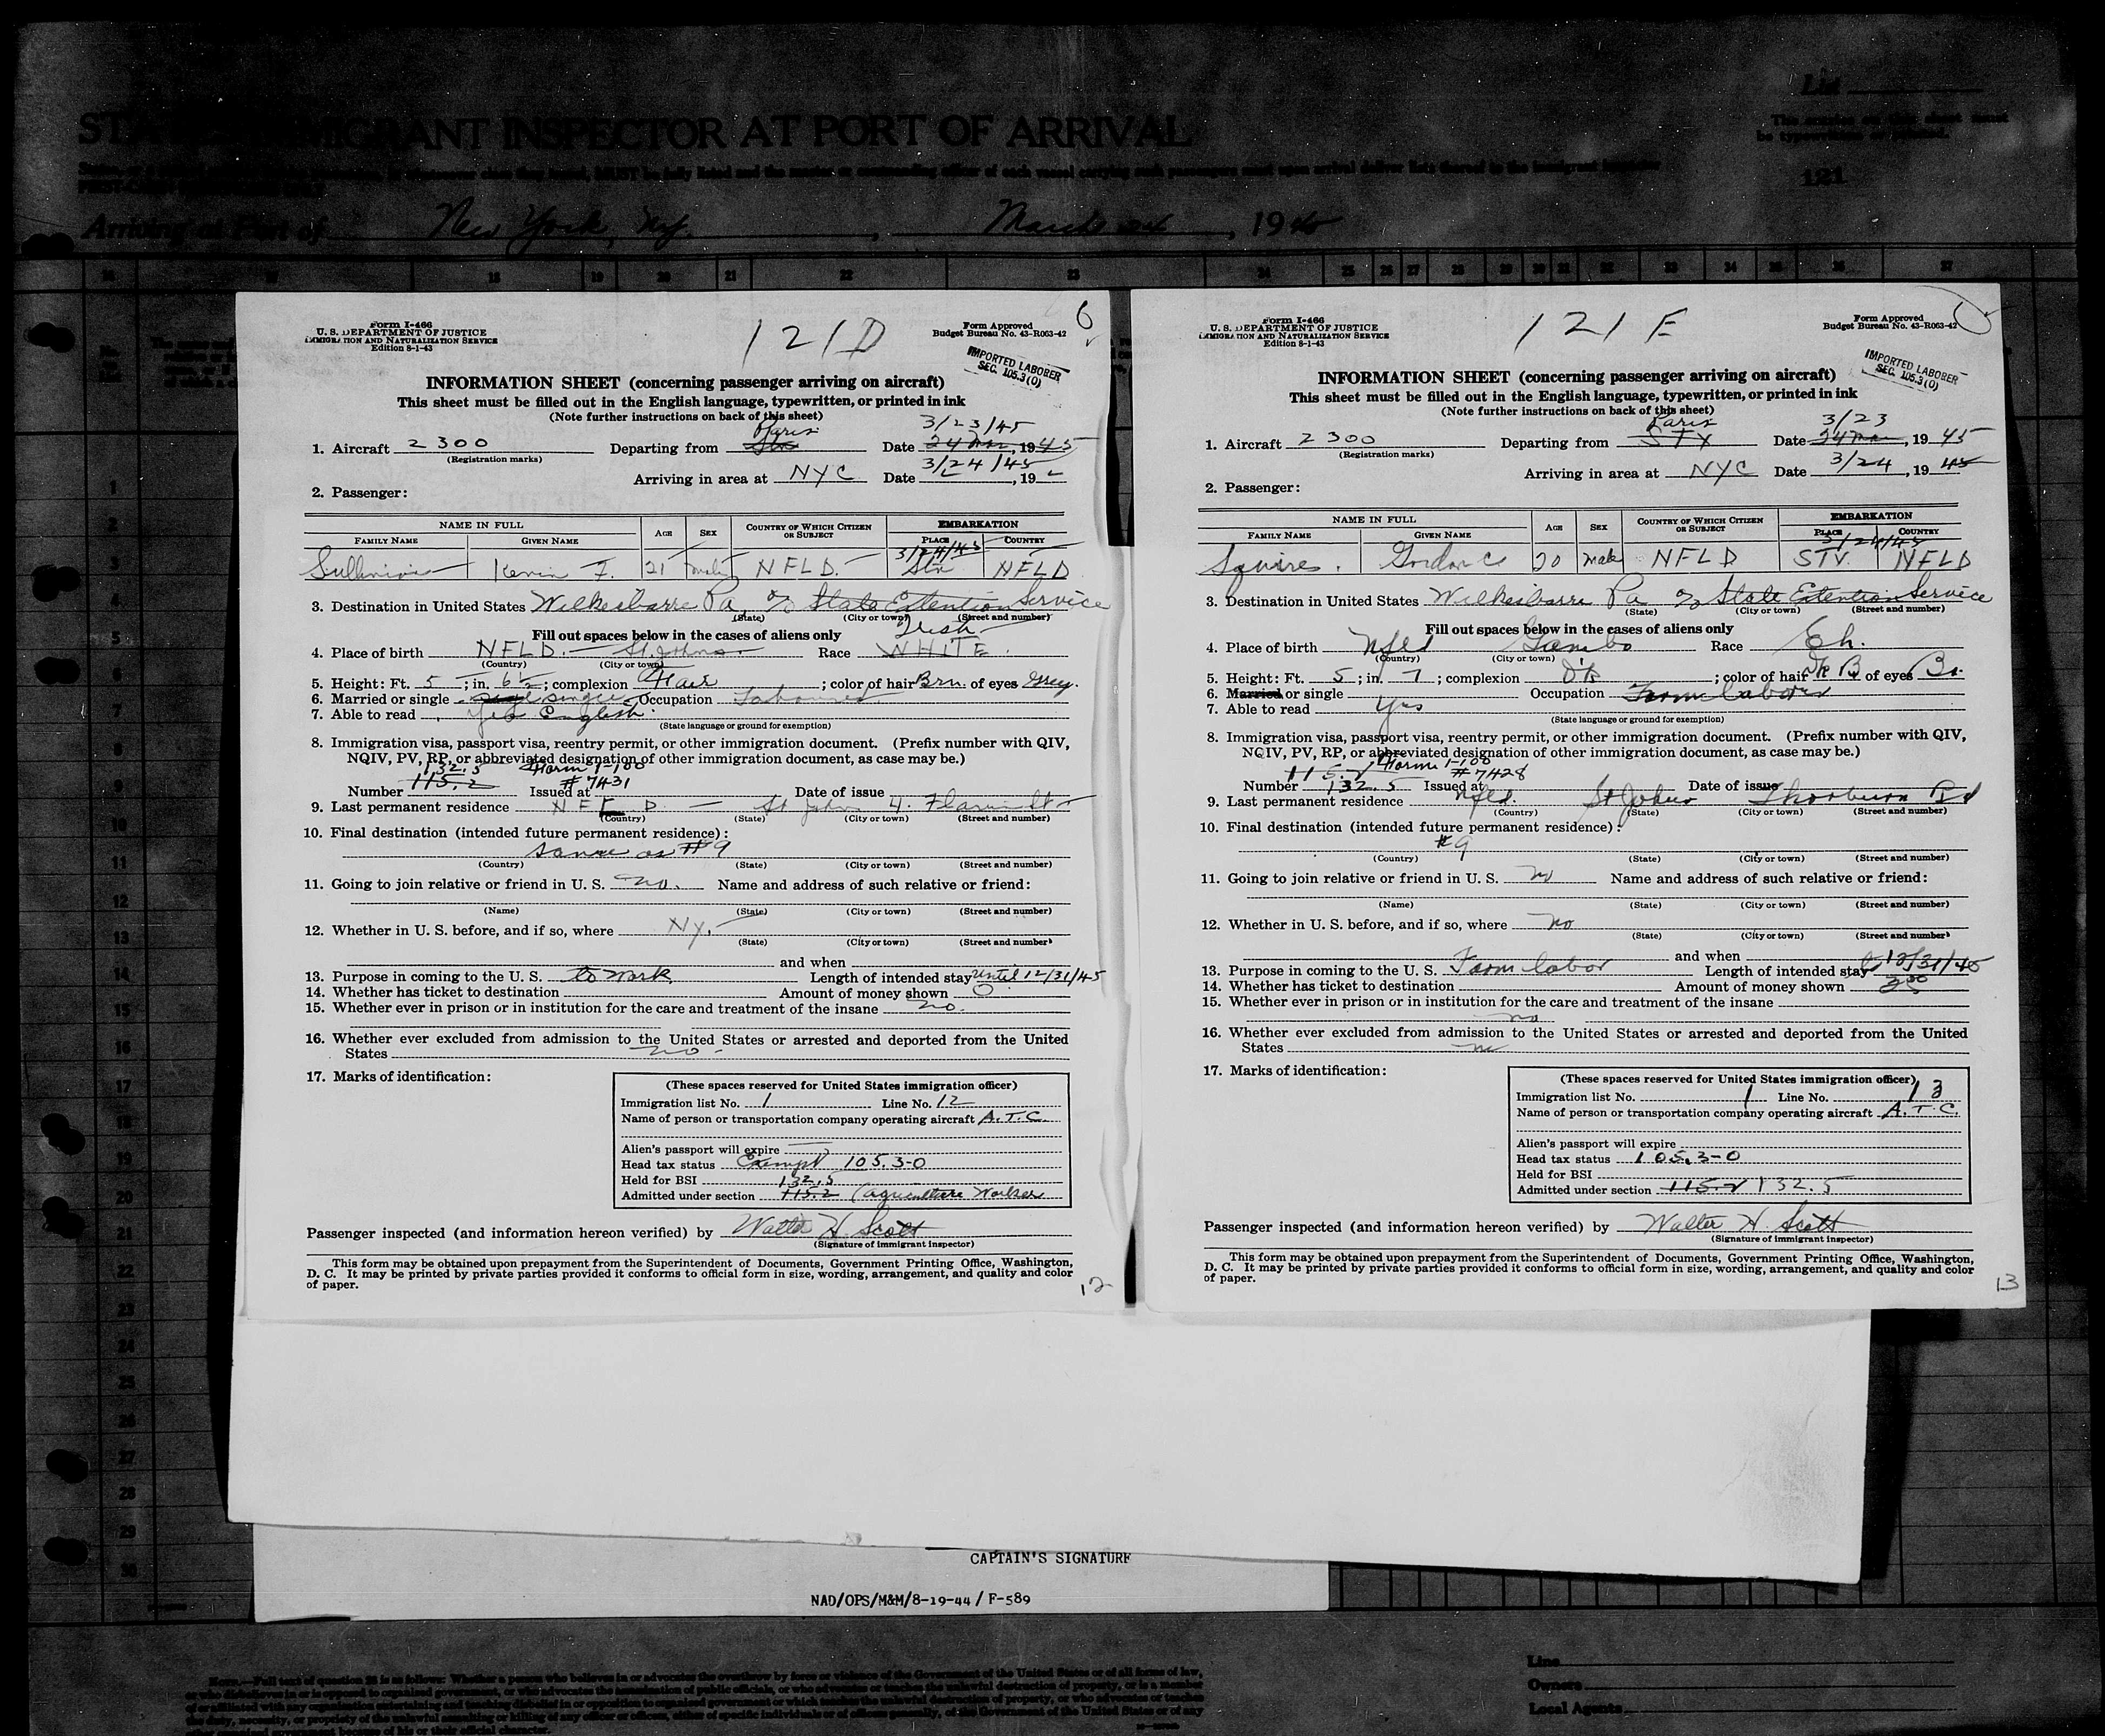 List
IMMIGRANT INSPECTOR AT PORT OF ARRIVAL
The entries on this sheet must
be typewritten or printed.
121
Arriving at Port of New York, Ny., March 24, 19
Form I-466
U. S. DEPARTMENT OF JUSTICE
IMMIGRATION AND NATURALIZATION SERVICE
Edition 8-1-43
121D
Form Approved
Budget Bureau No. 43-R063-42
6
IMPORTED LABORER
SEC. 105.3(O)
INFORMATION SHEET (concerning passenger arriving on aircraft)
This sheet must be filled out in the English language, typewritten, or printed in ink
(Note further instructions on back of this sheet)
Paris 3/23/45
1. Aircraft 2300 Departing from Stv Date 24 Mar, 1945
(Registration marks)
Arriving in area at NYC Date 3/24/45, 19
2. Passenger:
NAME IN FULL AGE SEX COUNTRY OF WHICH CITIZEN OR SUBJECT EMBARKATION
FAMILY NAME GIVEN NAME PLACE COUNTRY
3/24/45
Kevin F. 21 male NFLD. Stv NFLD
3. Destination in United States Wilkesbarre Pa, % State Extention Service
(State) (City or town) (Street and number)
Fill out spaces below in the cases of aliens only
Irish
4. Place of birth NFLD. — St. Johns Race WHITE.
(Country) (City or town)
5. Height: Ft. 5; in. 6½; complexion Fair; color of hair Brn. of eyes Grey.
6. Married or single single Occupation Labourer
7. Able to read Yes English.
(State language or ground for exemption)
8. Immigration visa, passport visa, reentry permit, or other immigration document. (Prefix number with QIV,
NQIV, PV, RP, or abbreviated designation of other immigration document, as case may be.)
132.5 Form I-100
Number 115.2 Issued at #7431 Date of issue
9. Last permanent residence NFLD — St John 4. Flavin St
(Country) (State) (City or town) (Street and number)
10. Final destination (intended future permanent residence):
same as #9
(Country) (State) (City or town) (Street and number)
11. Going to join relative or friend in U. S. no. Name and address of such relative or friend:
(Name) (State) (City or town) (Street and number)
12. Whether in U. S. before, and if so, where Ny.
(State) (City or town) (Street and number)
and when
13. Purpose in coming to the U. S. to work Length of intended stay until 12/31/45
14. Whether has ticket to destination Amount of money shown 0
15. Whether ever in prison or in institution for the care and treatment of the insane no.
16. Whether ever excluded from admission to the United States or arrested and deported from the United
States no-
17. Marks of identification:
(These spaces reserved for United States immigration officer)
Immigration list No. 1 Line No. 12
Name of person or transportation company operating aircraft A.T.C.
Alien's passport will expire
Head tax status Exempt 105.3-0
Held for BSI 132.5
Admitted under section 115.2 (agriculture Worker
Passenger inspected (and information hereon verified) by Walter H Scott
(Signature of immigrant inspector)
This form may be obtained upon prepayment from the Superintendent of Documents, Government Printing Office, Washington,
D. C. It may be printed by private parties provided it conforms to official form in size, wording, arrangement, and quality and color
of paper.
12
Form I-466
U. S. DEPARTMENT OF JUSTICE
IMMIGRATION AND NATURALIZATION SERVICE
Edition 8-1-43
121E
Form Approved
Budget Bureau No. 43-R063-42
IMPORTED LABORER
SEC. 105.3(O)
INFORMATION SHEET (concerning passenger arriving on aircraft)
This sheet must be filled out in the English language, typewritten, or printed in ink
(Note further instructions on back of this sheet)
Paris 3/23
1. Aircraft 2300 Departing from STV Date 24 Mar, 1945
(Registration marks)
Arriving in area at NYC Date 3/24, 1945
2. Passenger:
NAME IN FULL AGE SEX COUNTRY OF WHICH CITIZEN OR SUBJECT EMBARKATION
FAMILY NAME GIVEN NAME PLACE COUNTRY
3/24/45
Squires. Gordon C 20 Male NFLD STV. NFLD
3. Destination in United States Wilkesbarre Pa % State Extention Service
(State) (City or town) (Street and number)
Fill out spaces below in the cases of aliens only
4. Place of birth Nfld Gambo Race Eh.
(Country) (City or town)
5. Height: Ft. 5; in. 7; complexion D'k; color of hair Dk B of eyes Br.
6. Married or single Occupation Farm labor
7. Able to read yes
(State language or ground for exemption)
8. Immigration visa, passport visa, reentry permit, or other immigration document. (Prefix number with QIV,
NQIV, PV, RP, or abbreviated designation of other immigration document, as case may be.)
115.2 Form I-100
Number 132.5 Issued at #7428 Date of issue
9. Last permanent residence Nfld. St Johns Thorburn Rd
(Country) (State) (City or town) (Street and number)
10. Final destination (intended future permanent residence):
#9
(Country) (State) (City or town) (Street and number)
11. Going to join relative or friend in U. S. no Name and address of such relative or friend:
(Name) (State) (City or town) (Street and number)
12. Whether in U. S. before, and if so, where no
(State) (City or town) (Street and number)
and when
13. Purpose in coming to the U. S. Farm labor Length of intended stay 12/31/45
14. Whether has ticket to destination Amount of money shown
15. Whether ever in prison or in institution for the care and treatment of the insane
no
16. Whether ever excluded from admission to the United States or arrested and deported from the United
States no
17. Marks of identification:
(These spaces reserved for United States immigration officer)
Immigration list No. 1 Line No. 13
Name of person or transportation company operating aircraft A.T.C.
Alien's passport will expire
Head tax status 105.3-0
Held for BSI
Admitted under section 115.2 132.5
Passenger inspected (and information hereon verified) by Walter H. Scott
(Signature of immigrant inspector)
This form may be obtained upon prepayment from the Superintendent of Documents, Government Printing Office, Washington,
D. C. It may be printed by private parties provided it conforms to official form in size, wording, arrangement, and quality and color
of paper.
13
CAPTAIN'S SIGNATURE
NAD/OPS/M&M/8-19-44 / F-589
Line
Owners
Local Agents